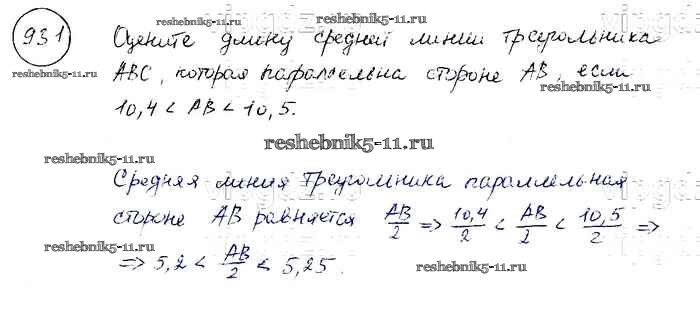 931
Оцените длину средней линии треугольника
ABC, которая параллельна стороне AB, если
10,4 < AB < 10,5.
Средняя линия треугольника параллельная
стороне AB равняется AB/2 => 10,4/2 < AB/2 < 10,5/2 =>
=> 5,2 < AB/2 < 5,25.
reshebnik5-11.ru
reshebnik5-11.ru
reshebnik5-11.ru
reshebnik5-11.ru
reshebnik5-11.ru
reshebnik5-11.ru
reshebnik5-11.ru